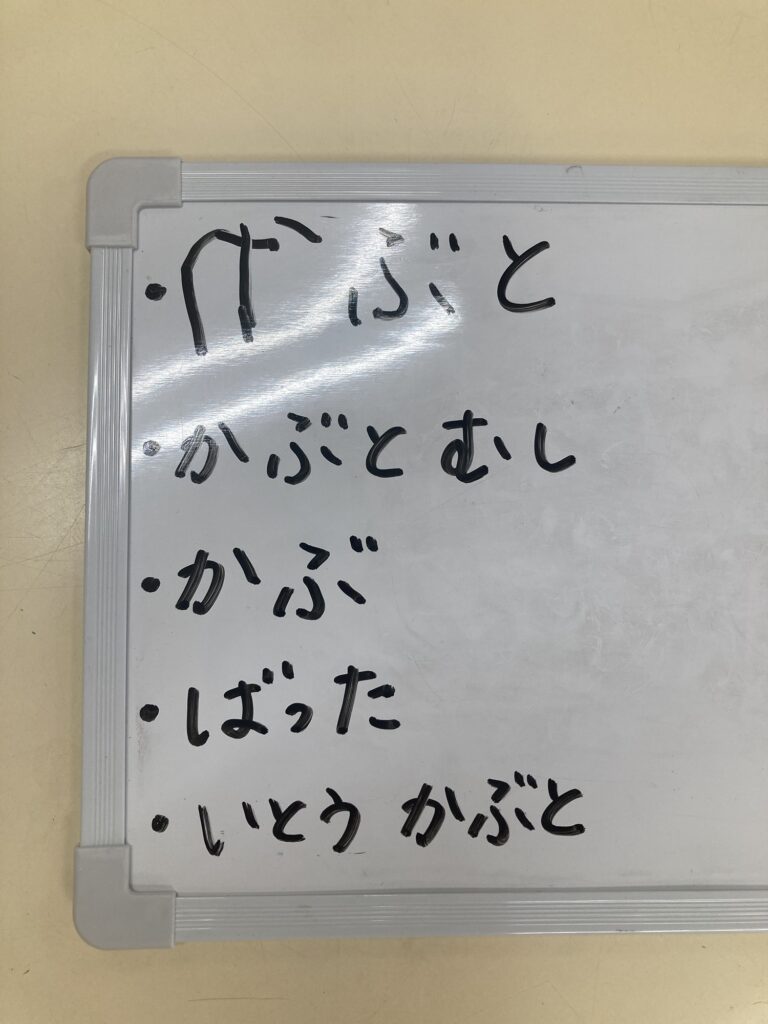 ・かぶと
・かぶとむし
・かぶ
・ばった
・いとう かぶと